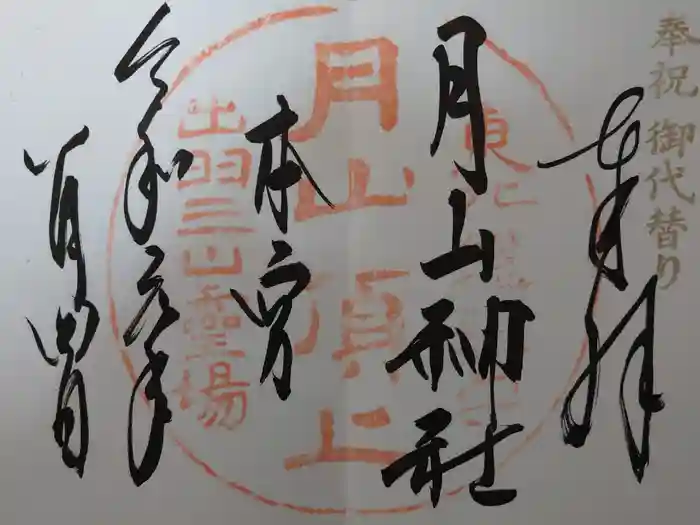 奉祝 御代替り
奉拝
月山神社
本宮
令和元年
八月四日
月山頂上
出羽三山霊場